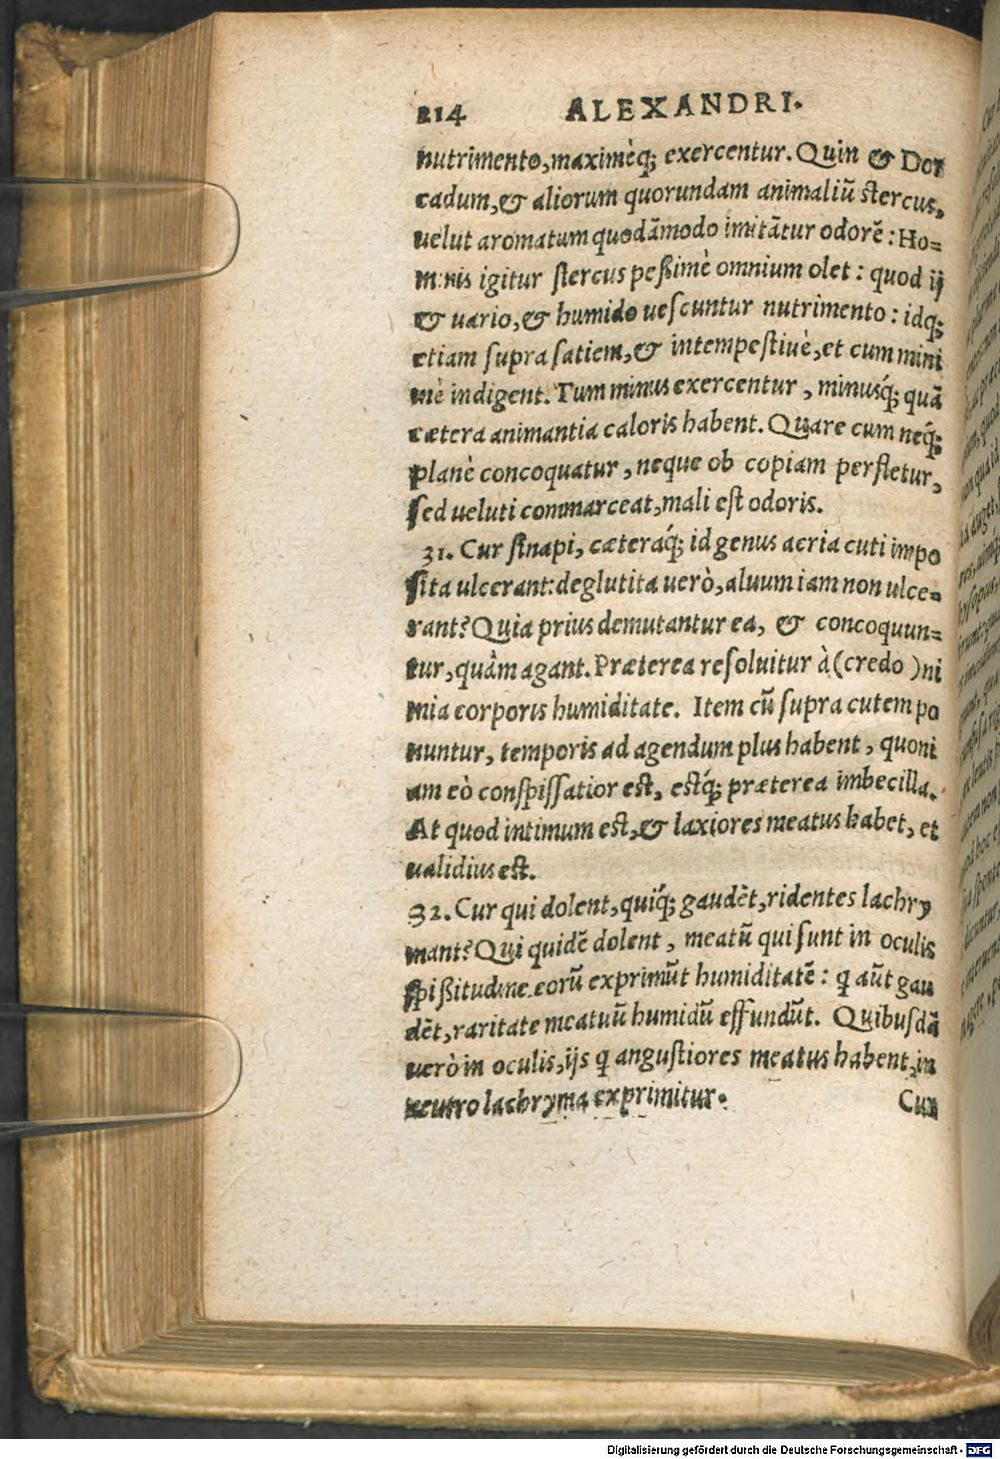 214 ALEXANDRI.
nutrimento, maximèq; exercentur. Quin & Dor
cadum, & aliorum quorundam animaliũ stercus,
uelut aromatum quodãmodo imitãtur odorẽ: Ho=
minis igitur stercus peßimè omnium olet: quod ij
& uario, & humido uescuntur nutrimento: idq;
etiam supra satiem, & intempestiuè, et cum mini
mè indigent. Tum minus exercentur, minusq́; quã
cætera animantia caloris habent. Quare cum neq́;
planè concoquatur, neque ob copiam perfletur,
sed ueluti commarceat, mali est odoris.
31. Cur sinapi, cæteraq́; id genus acria cuti impo
sita ulcerant: deglutita uerò, aluum iam non ulce=
rant? Quia prius demutantur ea, & concoquun=
tur, quàm agant. Præterea resoluitur à (credo) ni
mia corporis humiditate. Item cũ supra cutem po
nuntur, temporis ad agendum plus habent, quoni
am eò conspissatior est, estq́; præterea imbecilla.
At quod intimum est, & laxiores meatus habet, et
ualidius est.
32. Cur qui dolent, quiq́; gaudẽt, ridentes lachry
mant? Qui quidẽ dolent, meatũ qui sunt in oculis
spißitudine eorũ exprimũt humiditatẽ: q aũt gau
dẽt, raritate meatuũ humidũ effundũt. Quibusdã
uerò in oculis, ijs q angustiores meatus habent, in
neutro lachryma exprimitur.
Cur
Digitalisierung gefördert durch die Deutsche Forschungsgemeinschaft - DFG